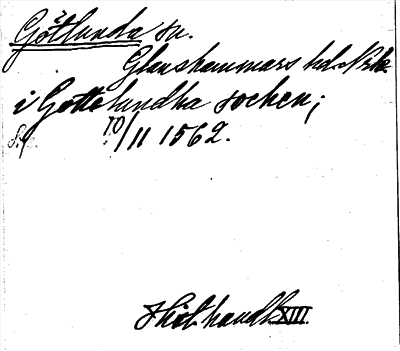 Götlunda sn.
Glanshammars hd. Närke.
i Gotte lundha sochen;
10/11 1562.
Hist. handl. XIII.